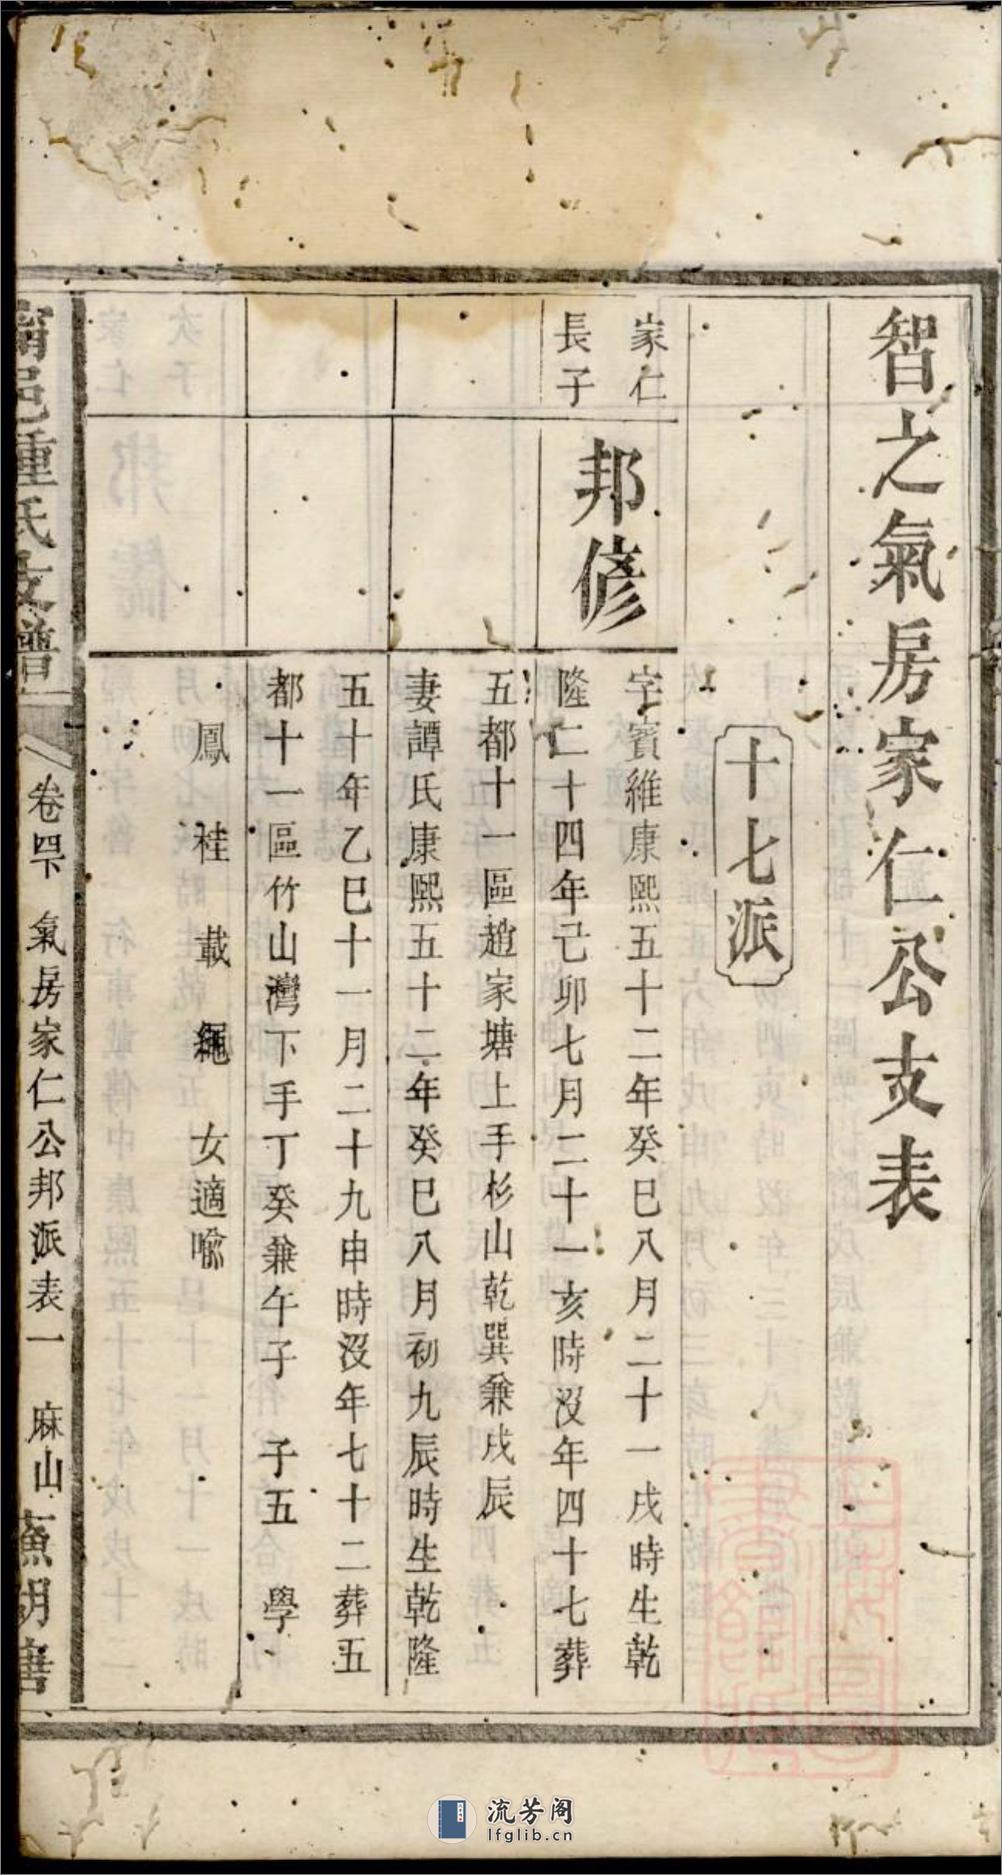 智之氣房家仁公支表
十七派
家仁
長子
邦偐
字賓維康熙五十二年癸巳八月二十一戌時生乾
隆二十四年己卯七月二十一亥時沒年四十七葬
五都十一區趙家塘上手杉山乾巽兼戌辰
妻譚氏康熙五十二年癸巳八月初九辰時生乾隆
五十年乙巳十一月二十九申時沒年七十二葬五
都十一區竹山灣下手丁癸兼午子 子五 學
鳳 桂 載 繩 女適喻
邑鍾氏支譜
卷四下 氣房家仁公邦派表一 麻山
流芳阁
lfglib.cn